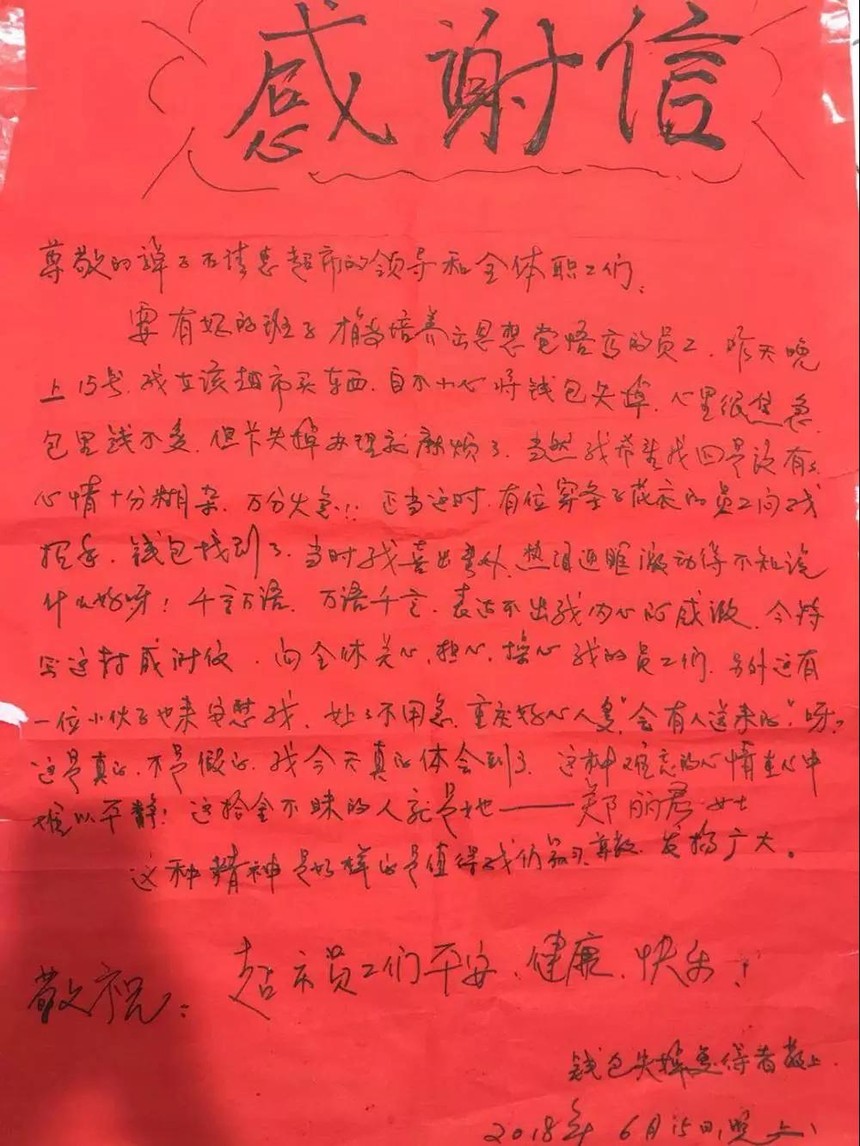 感谢信
尊敬的 超市的领导和全体职工们:
要有好的班子才能培养出思想觉悟高的员工.昨天晚
上15号.我在该超市买东西.自不小心将钱包失掉.心里很焦急.
包里钱不多.但卡失掉办理就麻烦了.当然我希望找回是没有了.
心情十分糊杂.万分火急!!正当这时.有位穿条子 衣的员工向我
招手.钱包找到了.当时我喜出弯外.热泪迎眶激动得不知说
什么好呀!千言万语.万语千言.表达不出我内心的感激.今特
写这封感谢信.向全体关心.担心.操心我的员工们.另外还有
一位小伙子也来安慰我. 不用急.重庆好心人多"会有人送来的"呀?
这是真的.不是假的.我今天真的体会到了.这种难忘的心情在心中
难以平静!这拾金不昧的人就是她——郑丽君女士
这种精神是好样的是值得我们学习.尊敬.发扬广大。
敬祝:超市员工们平安、健康、快乐!
钱包失掉 得者敬上.
2018年6月15日晚上